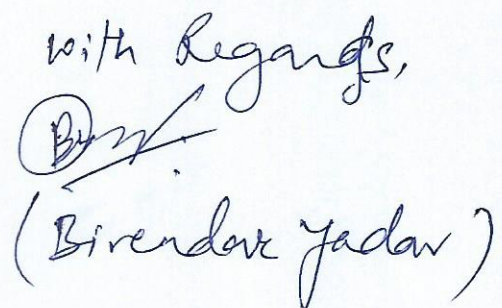 with Regards,
(Birendar Yadav)